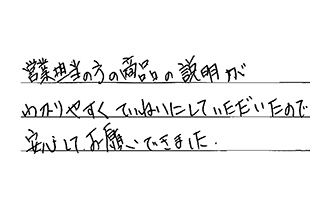 営業担当の方の商品の説明が
わかりやすくていねいにしていただいたので
安心してお願いできました.